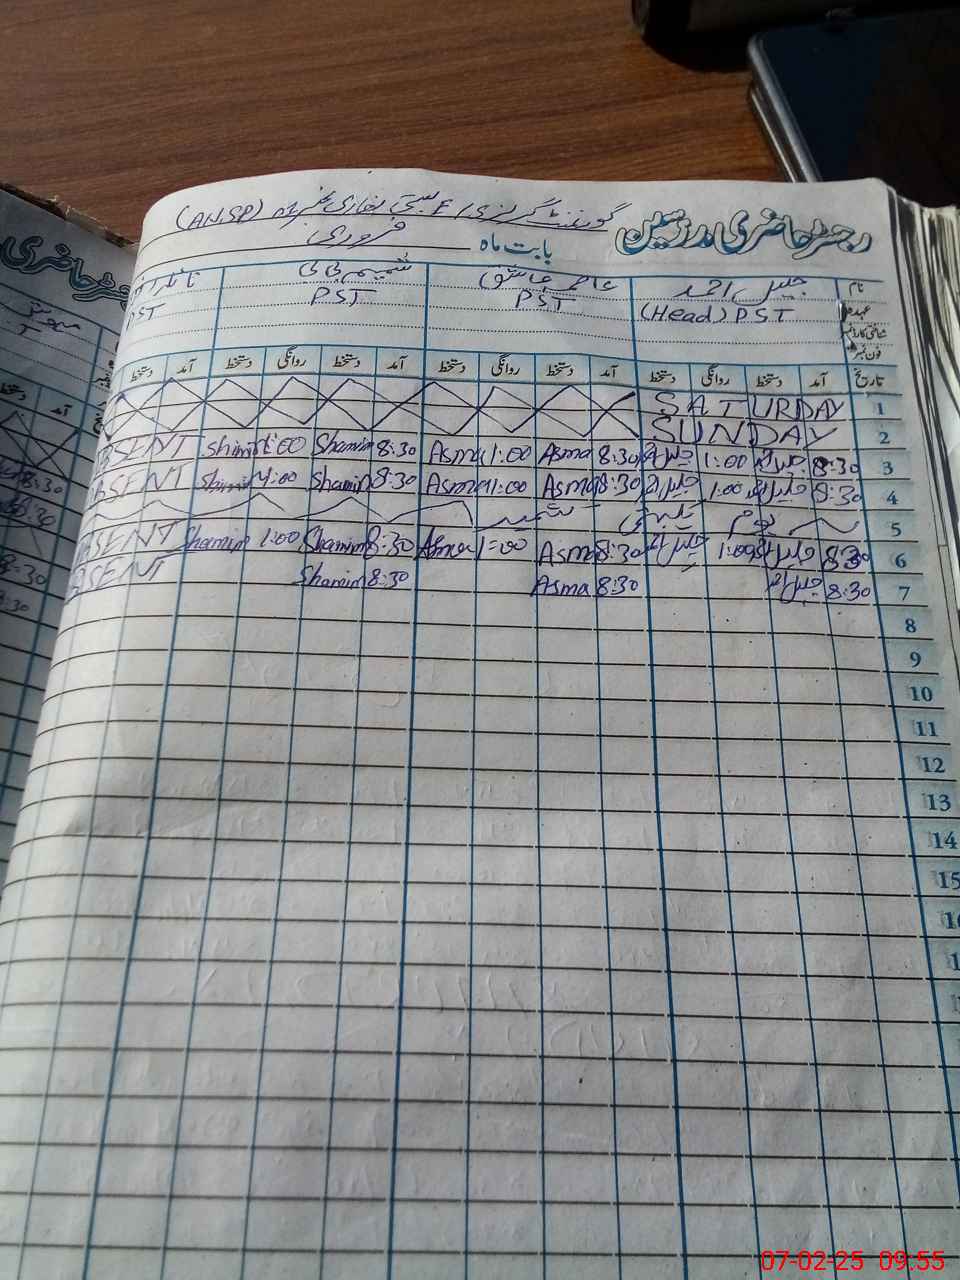 رجسٹر حاضری مدرسین گورنمنٹ گرلز پرائمری بستی بخاری (ANSP)
بابت ماہ فروری
نام جلیل احمد عاصمہ عاشق شمیم بی بی
عہدہ (Head) PST PST PST PST
شناختی کارڈ نمبر
فون نمبر
تاریخ آمد دستخط روانگی دستخط آمد دستخط روانگی دستخط آمد دستخط روانگی دستخط آمد دستخط
1 SATURDAY
2 SUNDAY
3 8:30 جلیل احمد 1:00 جلیل احمد 8:30 Asma 1:00 Asma 8:30 Shamim 1:00 Shamim ABSENT
4 8:30 جلیل احمد 1:00 جلیل احمد 8:30 Asma 1:00 Asma 8:30 Shamim 1:00 Shamim ABSENT
5 یوم یکجہتی کشمیر
6 8:30 جلیل احمد 1:00 جلیل احمد 8:30 Asma 1:00 Asma 8:30 Shamim 1:00 Shamim ABSENT
7 8:30 جلیل احمد 8:30 Asma 8:30 Shamim ABSENT
8
9
10
11
12
13
14
15
07-02-25 09:55